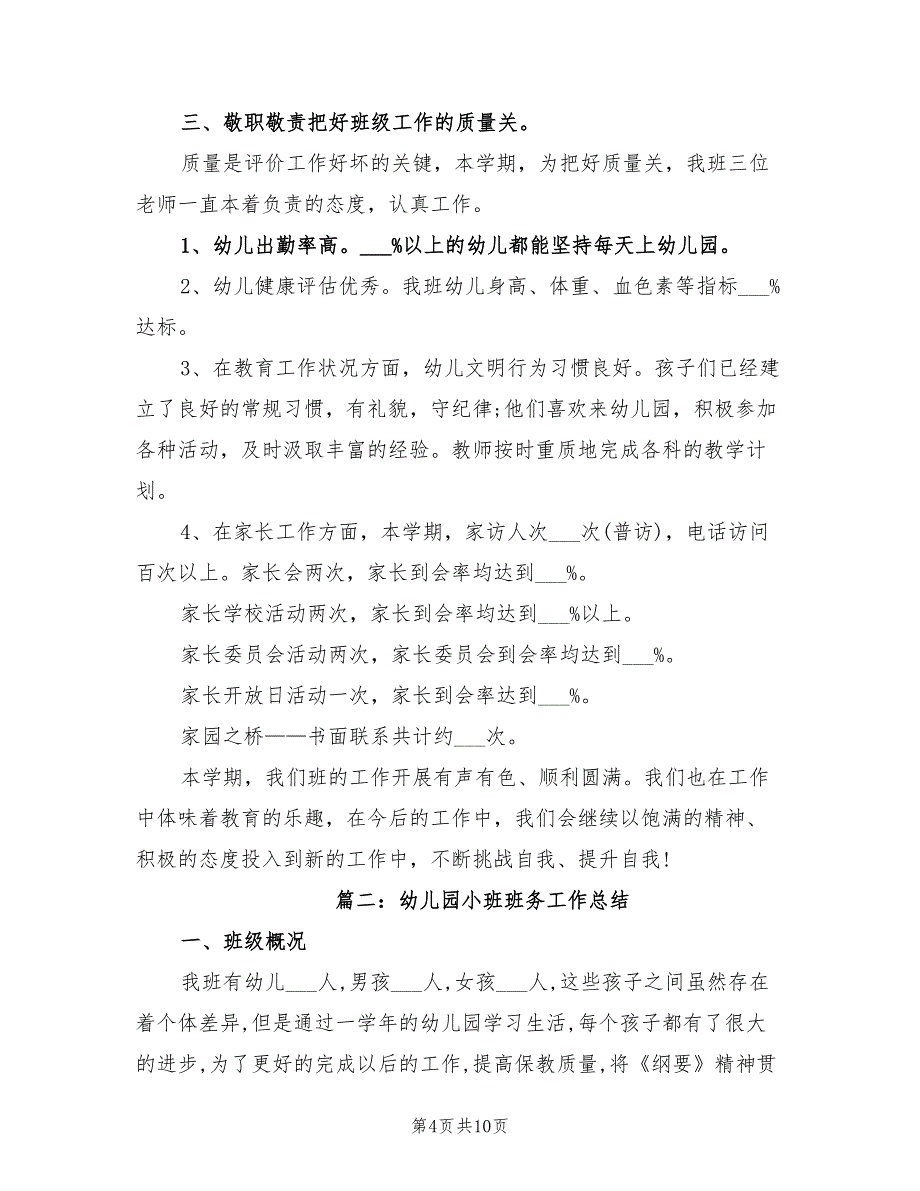 三、敬职敬责把好班级工作的质量关。
质量是评价工作好坏的关键，本学期，为把好质量关，我班三位
老师一直本着负责的态度，认真工作。
1、幼儿出勤率高。___%以上的幼儿都能坚持每天上幼儿园。
2、幼儿健康评估优秀。我班幼儿身高、体重、血色素等指标___%
达标。
3、在教育工作状况方面，幼儿文明行为习惯良好。孩子们已经建
立了良好的常规习惯，有礼貌，守纪律;他们喜欢来幼儿园，积极参加
各种活动，及时汲取丰富的经验。教师按时重质地完成各科的教学计
划。
4、在家长工作方面，本学期，家访人次___次(普访)，电话访问
百次以上。家长会两次，家长到会率均达到___%。
家长学校活动两次，家长到会率均达到___%以上。
家长委员会活动两次，家长委员会到会率均达到___%。
家长开放日活动一次，家长到会率达到___%。
家园之桥——书面联系共计约___次。
本学期，我们班的工作开展有声有色、顺利圆满。我们也在工作
中体味着教育的乐趣，在今后的工作中，我们会继续以饱满的精神、
积极的态度投入到新的工作中，不断挑战自我、提升自我!
篇二：幼儿园小班班务工作总结
一、班级概况
我班有幼儿___人,男孩___人,女孩___人,这些孩子之间虽然存在
着个体差异,但是通过一学年的幼儿园学习生活,每个孩子都有了很大
的进步,为了更好的完成以后的工作,提高保教质量,将《纲要》精神贯
第4页共10页